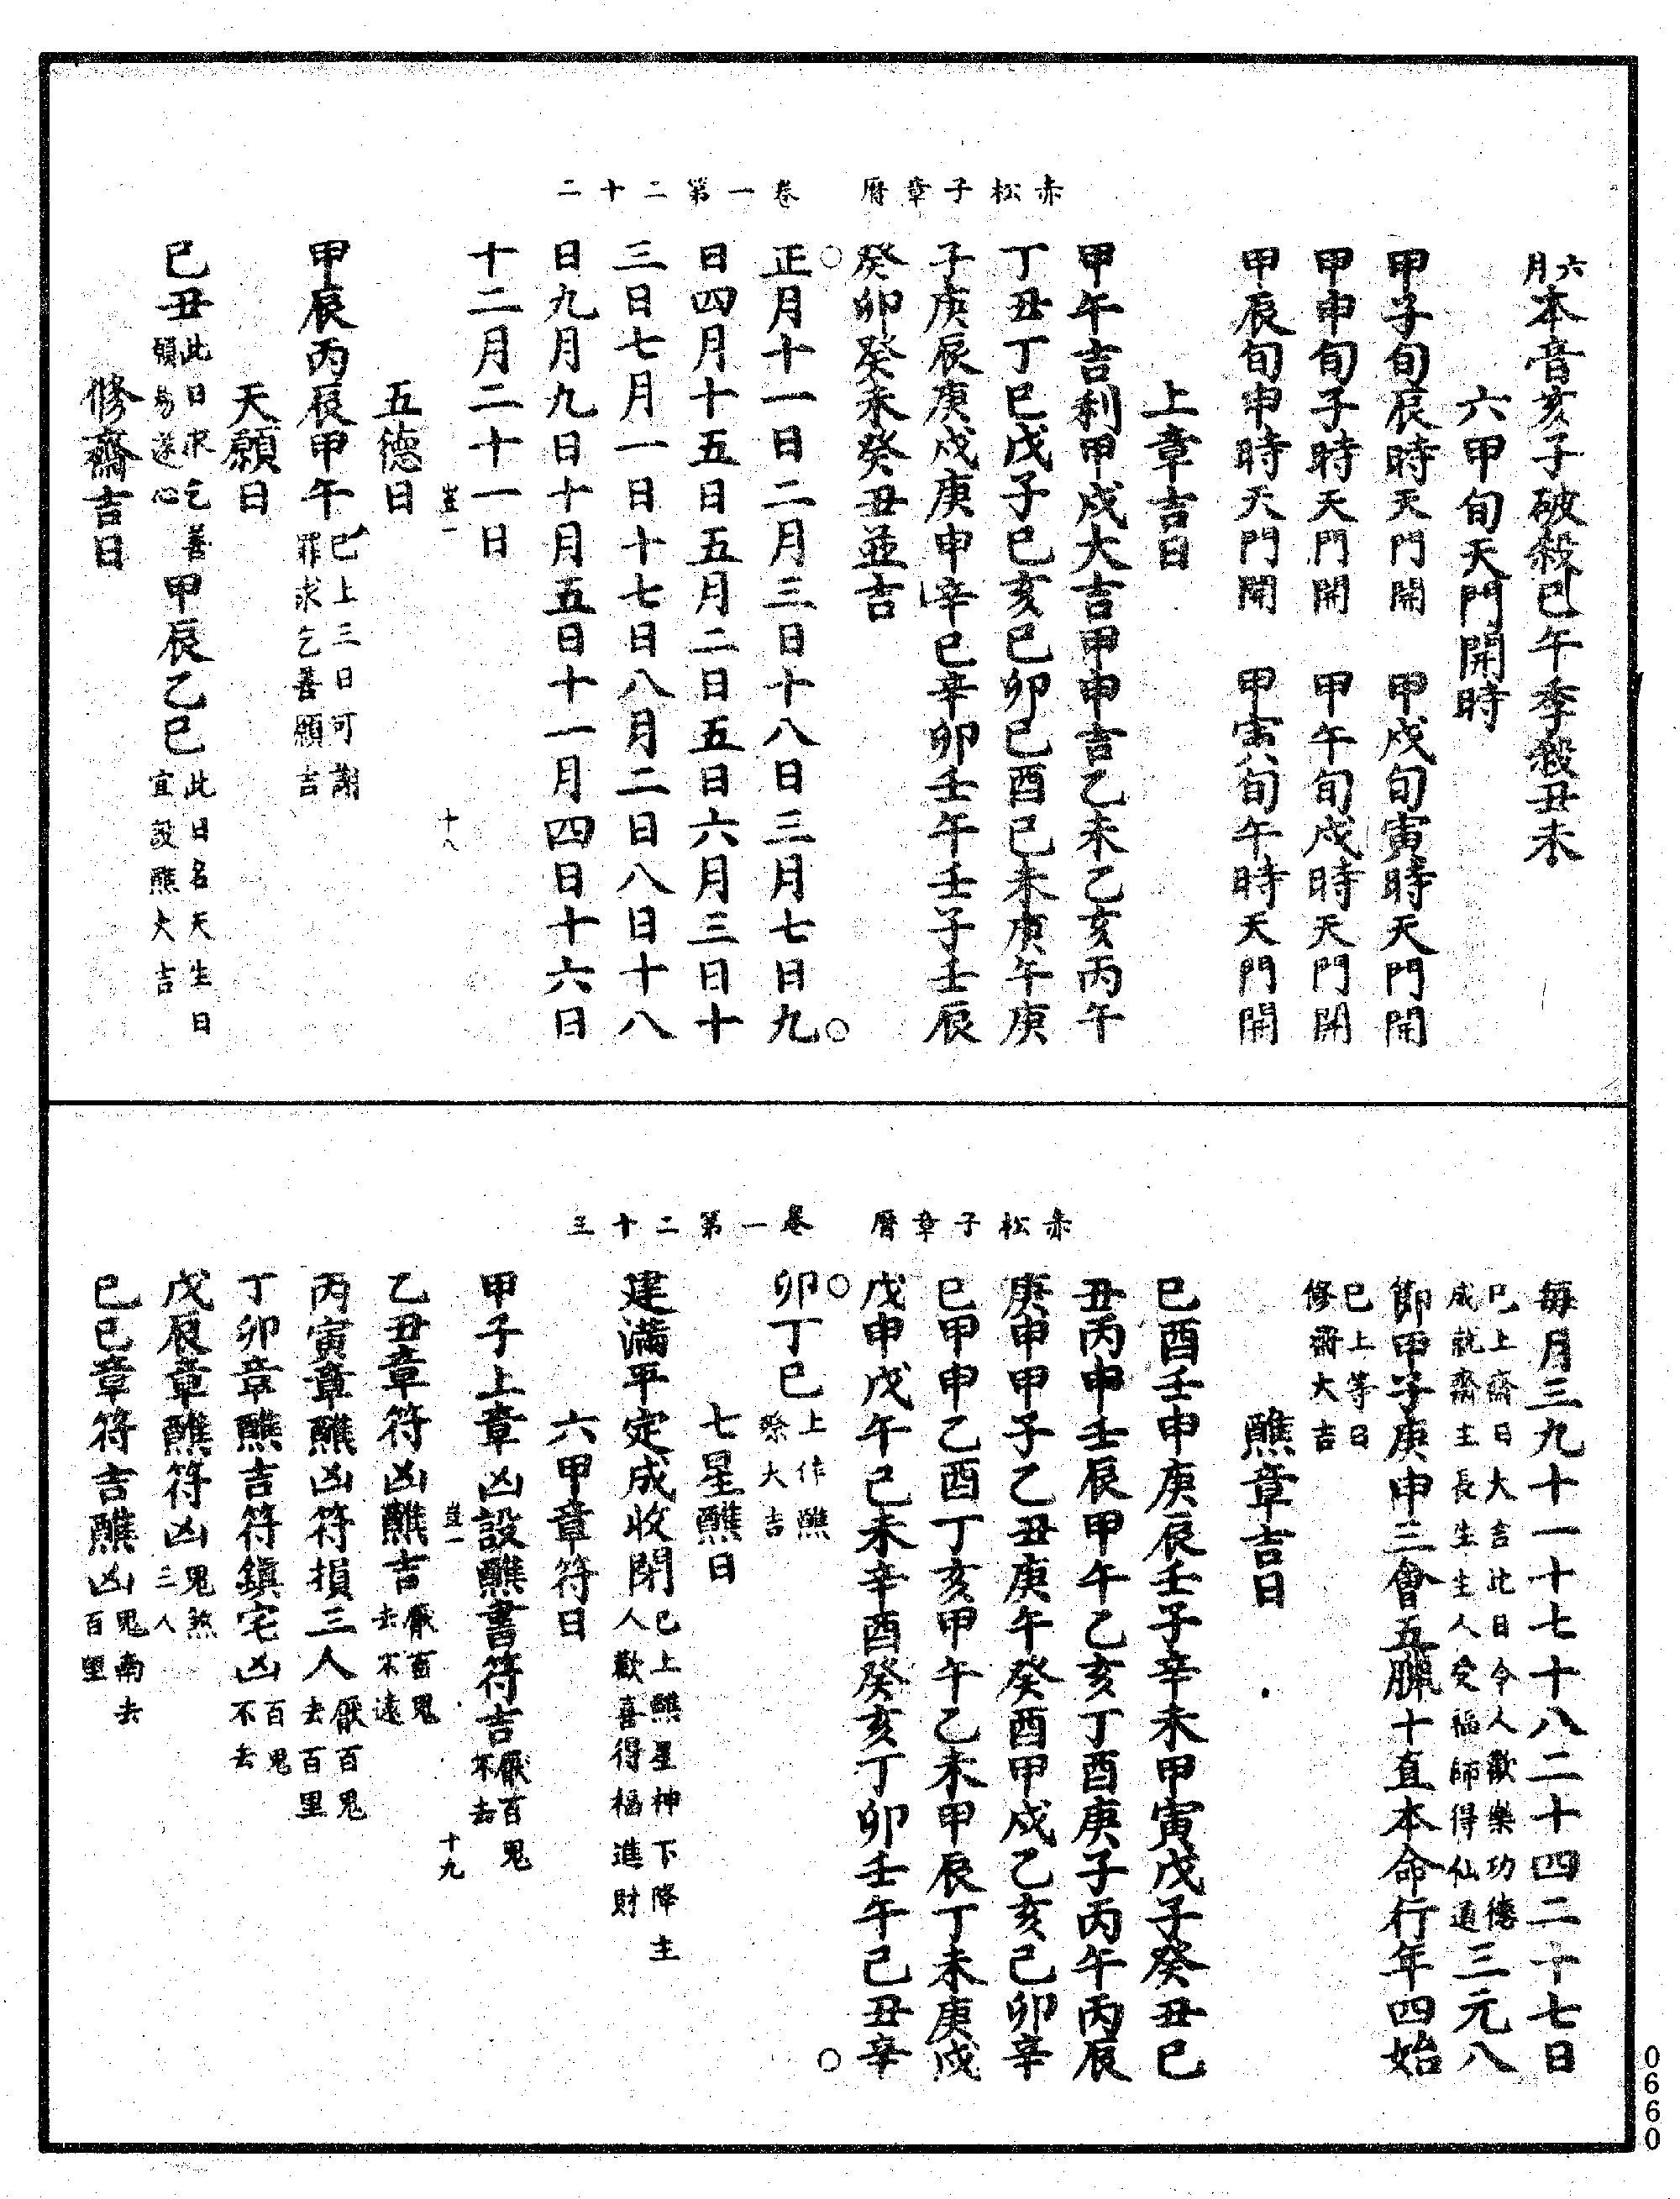 赤松子章曆　卷一第二十二
六月本音亥子破殺巳午季殺丑未
六甲旬天門開時
甲子旬辰時天門開　甲戌旬寅時天門開
甲申旬子時天門開　甲午旬戌時天門開
甲辰旬申時天門開　甲寅旬午時天門開
上章吉日
甲午吉利甲戌大吉甲申吉乙未乙亥丙午
丁丑丁巳戊子己亥己卯己酉己未庚午庚
子庚辰庚戌庚申辛巳辛卯壬午壬子壬辰
癸卯癸未癸丑並吉
正月十一日二月三日十八日三月七日九
日四月十五日五月二日五日六月三日十
三日七月一日十七日八月二日八日十八
日九月九日十月五日十一月四日十六日
十二月二十一日
豈一　十八
五德日
甲辰丙辰甲午已上三日可謝罪求乞善願吉
天願日
己丑此日求乞善願易遂心　甲辰乙巳此日名天生日宜設醮大吉
修齋吉日
赤松子章曆　卷一第二十三
每月三九十一十七十八二十四二十七日
已上齋日大吉此日令人歡樂功德成就齋主長生生人受福師得仙道三元八
節甲子庚申三會五臘十直本命行年四始
已上等日修齋大吉
醮章吉日
己酉壬申庚辰壬子辛未甲寅戊子癸丑己
丑丙申壬辰甲午乙亥丁酉庚子丙午丙辰
庚申甲子乙丑庚午癸酉甲戌乙亥己卯辛
巳甲申乙酉丁亥甲午乙未甲辰丁未庚戌
戊申戊午己未辛酉癸亥丁卯壬午己丑辛
卯丁巳上作醮祭大吉
七星醮日
建滿平定成收閉已上醮星神下降主人歡喜得福進財
六甲章符日
甲子上章凶設醮書符吉厭百鬼不去
豈一　十九
乙丑章符凶醮吉厭百鬼去不遠
丙寅章醮凶符損三人厭百鬼去百里
丁卯章醮吉符鎮宅凶百鬼不去
戊辰章醮符凶鬼煞三人
己巳章符吉醮凶鬼南去百里
0660